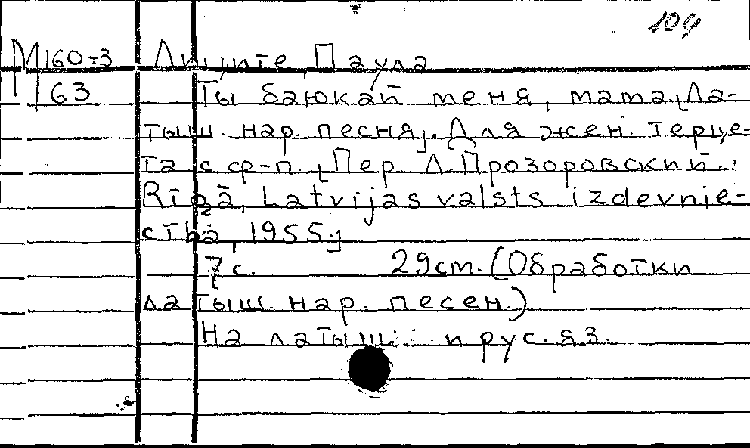 109
М160-3 Лиците, Паула
М63 Ты баюкай меня, мама [Ла-
тыш. нар. песня]. Для жен. терце-
та с ф-п. [Пер Л. Прозоровский.:
Rīgā, Latvijas valsts izdevnie-
cība, 1955.]
7 с. 29 cm. (Обработки
латыш. нар. песен.)
На латыш. и рус. яз.